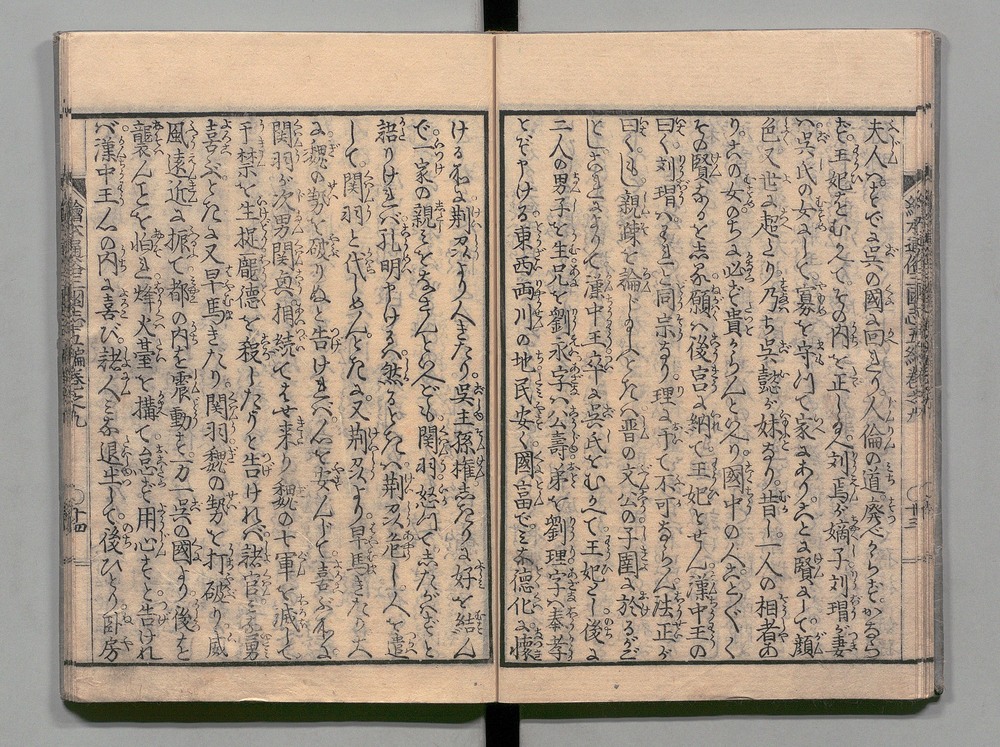 夫人はすでに呉の國に回まり人倫の道廃べからずかならず
ず王妃をむかへてその内を正し玉へ刘焉が嫡子刘瑁が妻
ハ呉氏の女にして寡を守つて家にあり久とも賢にして顔
色又世に超たり乃ち呉懿が妹なり昔し一人の相者あ
りこの女のちに必ず貴からんと云へり國中の人ことごとく
その賢なるを志る願ハ後宮に納て王妃とせん漢中王の
曰く刘瑁ハもと同宗なり理に于て不可ならん法正が
曰くもし親疎を論じ玉ハとたハ晋の文公の子圉に於るが
としこれによりて漢中王卒に呉氏をむかへて王妃とし後に
二人の男子を生兄を劉永字ハ公壽弟を劉理字ハ奉孝
とぞ申ける東西両川の地民安く國富でミな德化に懐
ける処に荆州より人きたり呉主孫権志たりに好を結ん
で一家の親ミをなさんといへども関羽怒つて志たがハずと
語りけれバ孔明申けるハ然るときハ荆州危し人を遣
して関羽と代しめんとたに又荆州より早馬きたりて
に魏の勢を破りぬと告けれバ心を安んじて喜ぶ処に
関羽が次男関興相続てはせ来り魏の七軍を滅して
于禁を生捉龐德を殺したりと告けれバ諸官ミな勇
喜ぶとたに又早馬きたり関羽魏の勢を打破り威
風遠近に振て都の内も震動す万一呉の國より後を
襲んことを怕れ烽火臺を搆て急ず用心すと告けれ
バ漢中王心の内に喜び諸人ミな退出して後ひとり卧房
繪本通俗三國志五編巻之九
廿三
繪本通俗三國志五編巻之九
廿四